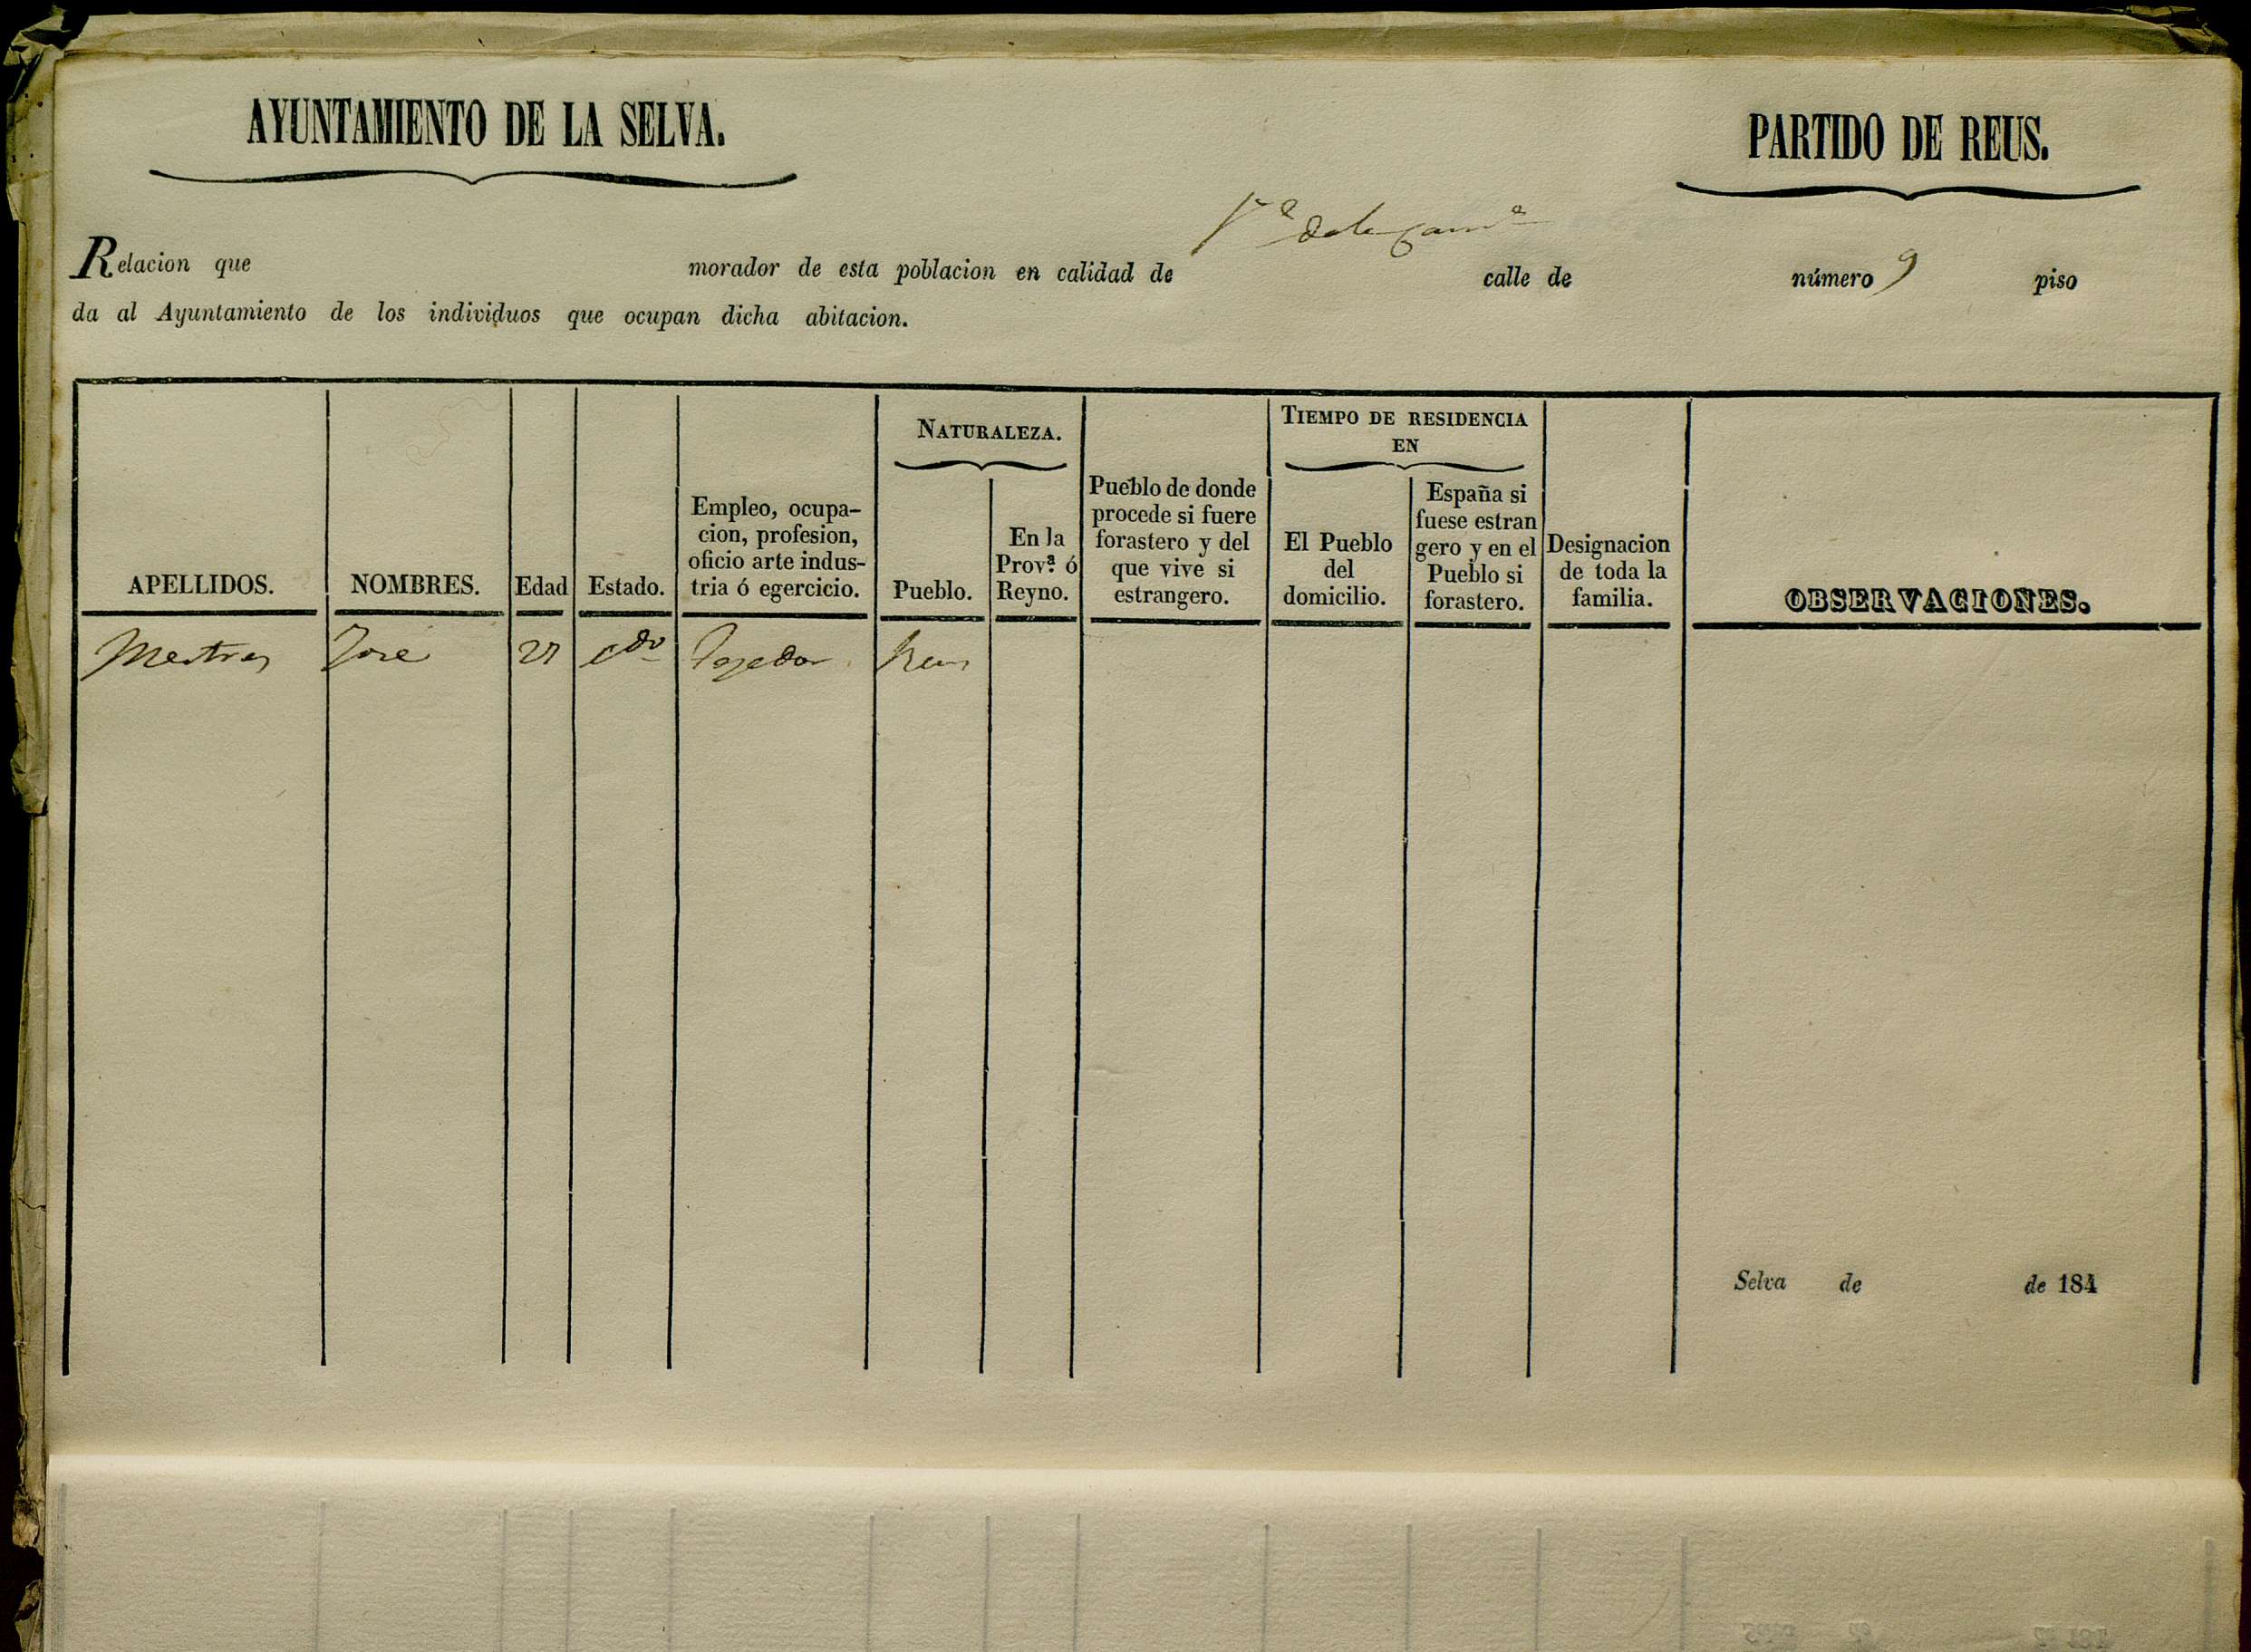 AYUNTAMIENTO DE LA SELVA.
PARTIDO DE REUS.
Relacion que morador de esta poblacion en calidad de calle de número 9 piso
da al Ayuntamiento de los individuos que ocupan dicha abitacion.
APELLIDOS.
NOMBRES.
Edad
Estado.
Empleo, ocupa-
cion, profesion,
oficio arte indus-
tria ó egercicio.
NATURALEZA.
Pueblo.
En la
Prov.ª ó
Reyno.
Pueblo de donde
procede si fuere
forastero y del
que vive si
estrangero.
TIEMPO DE RESIDENCIA
EN
El Pueblo
del
domicilio.
España si
fuese estran
gero y en el
Pueblo si
forastero.
Designacion
de toda la
familia.
OBSERVACIONES.
Mestres José 27 cdo Tegedor Reus
Selva de de 184